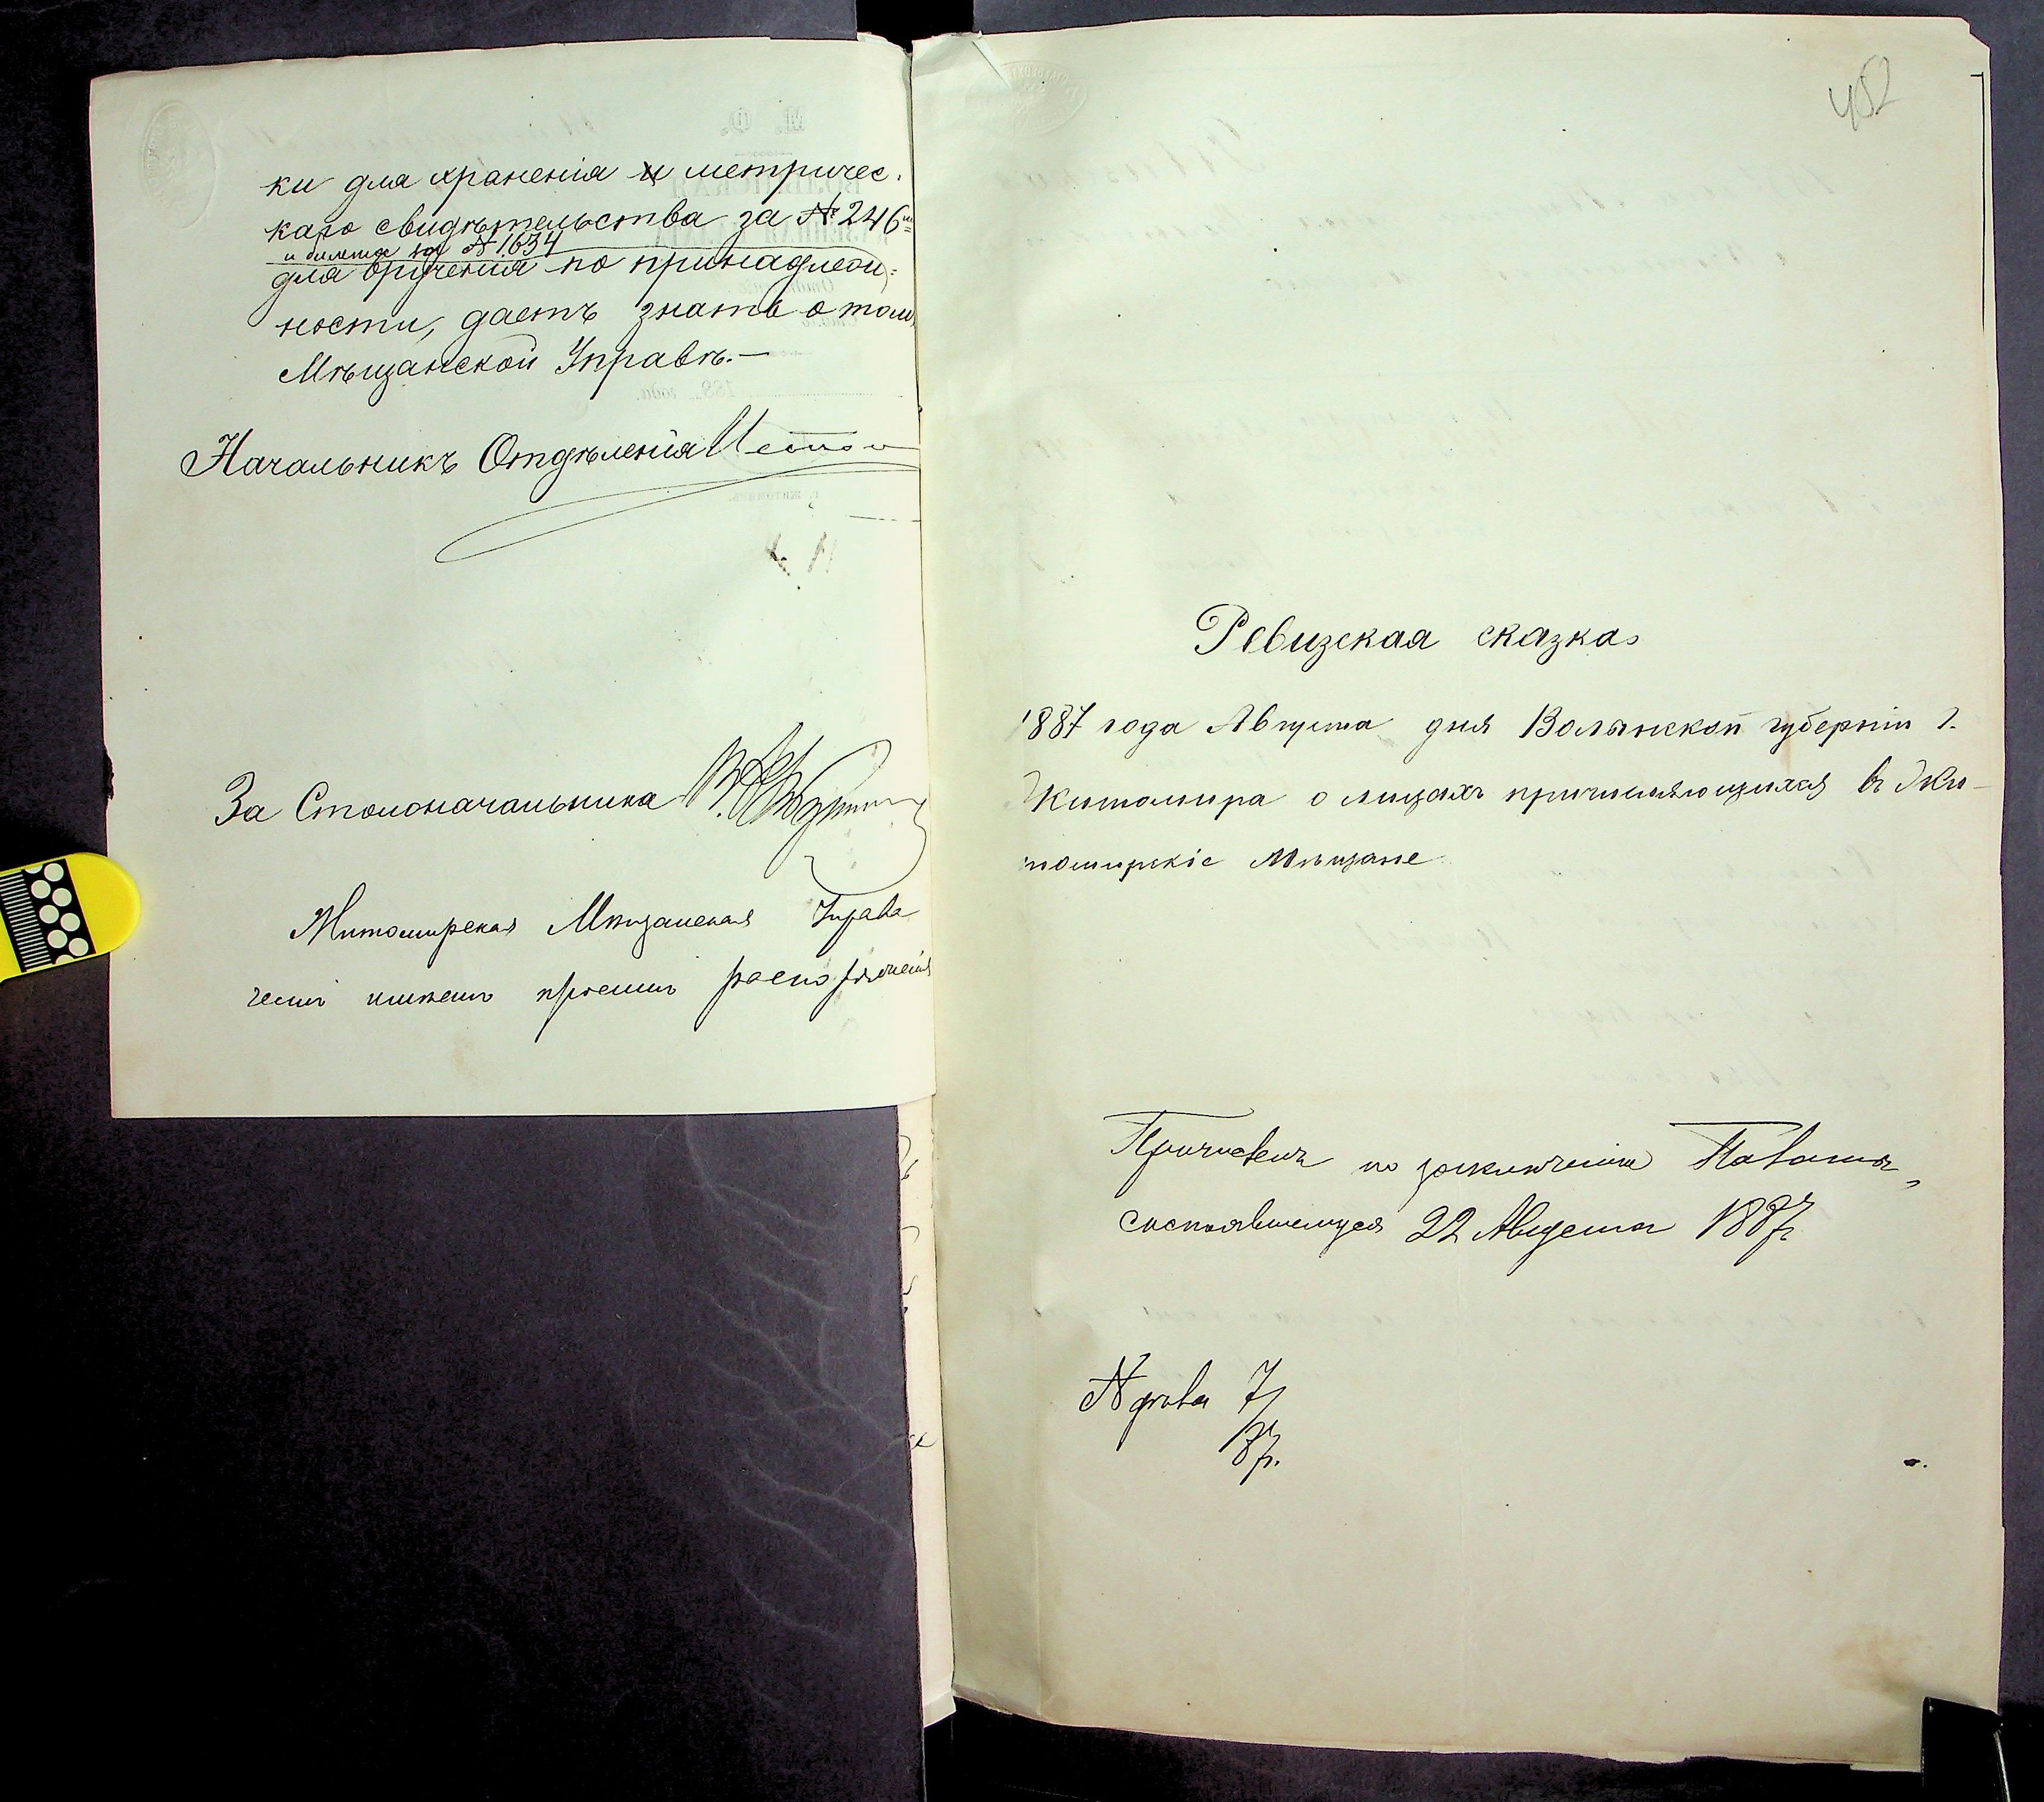 ки для храненія и метричес.
каго свидѣтельства за № 246
и билета за № 1634
для врученія по принадлеж=
ности, даетъ знать о томъ
Мѣщанской Управѣ.—
Начальникъ Отдѣленія
За Столоначальника
Житомирская Мѣщанская Управа
честь имѣетъ просить распоряженія
452
Ревизская сказка
1887 года Августа дня Волынской губерніи г.
Житомира о лицахъ причисляющихся въ Жи-
томирскіе Мѣщане
по заключенію Палаты,
состоявшемуся 22 Августа 1887 г.
№ дѣла 7/
87 г.